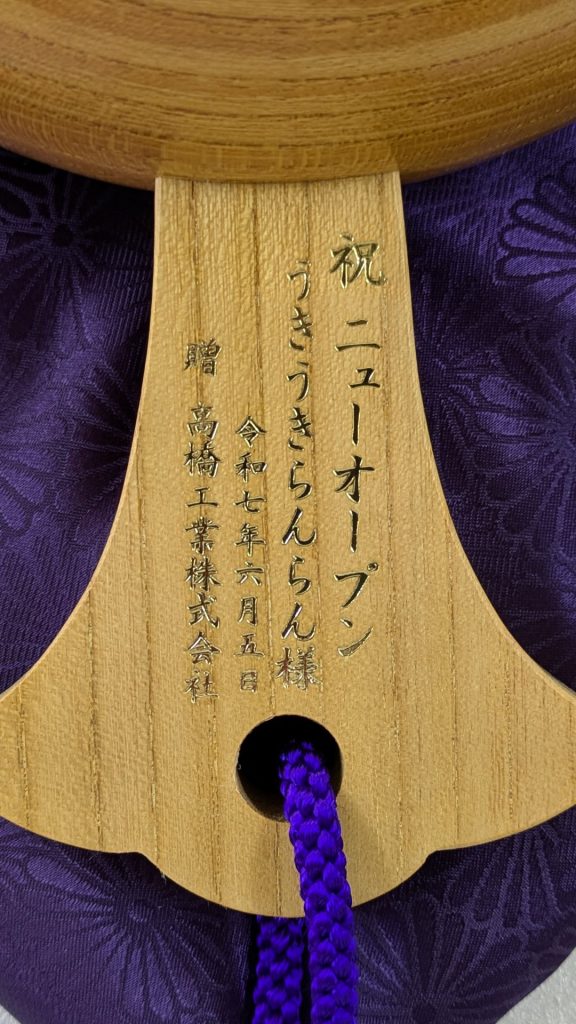 祝 ニューオープン
うきうきらんらん様
令和七年六月五日
贈 高橋工業株式会社